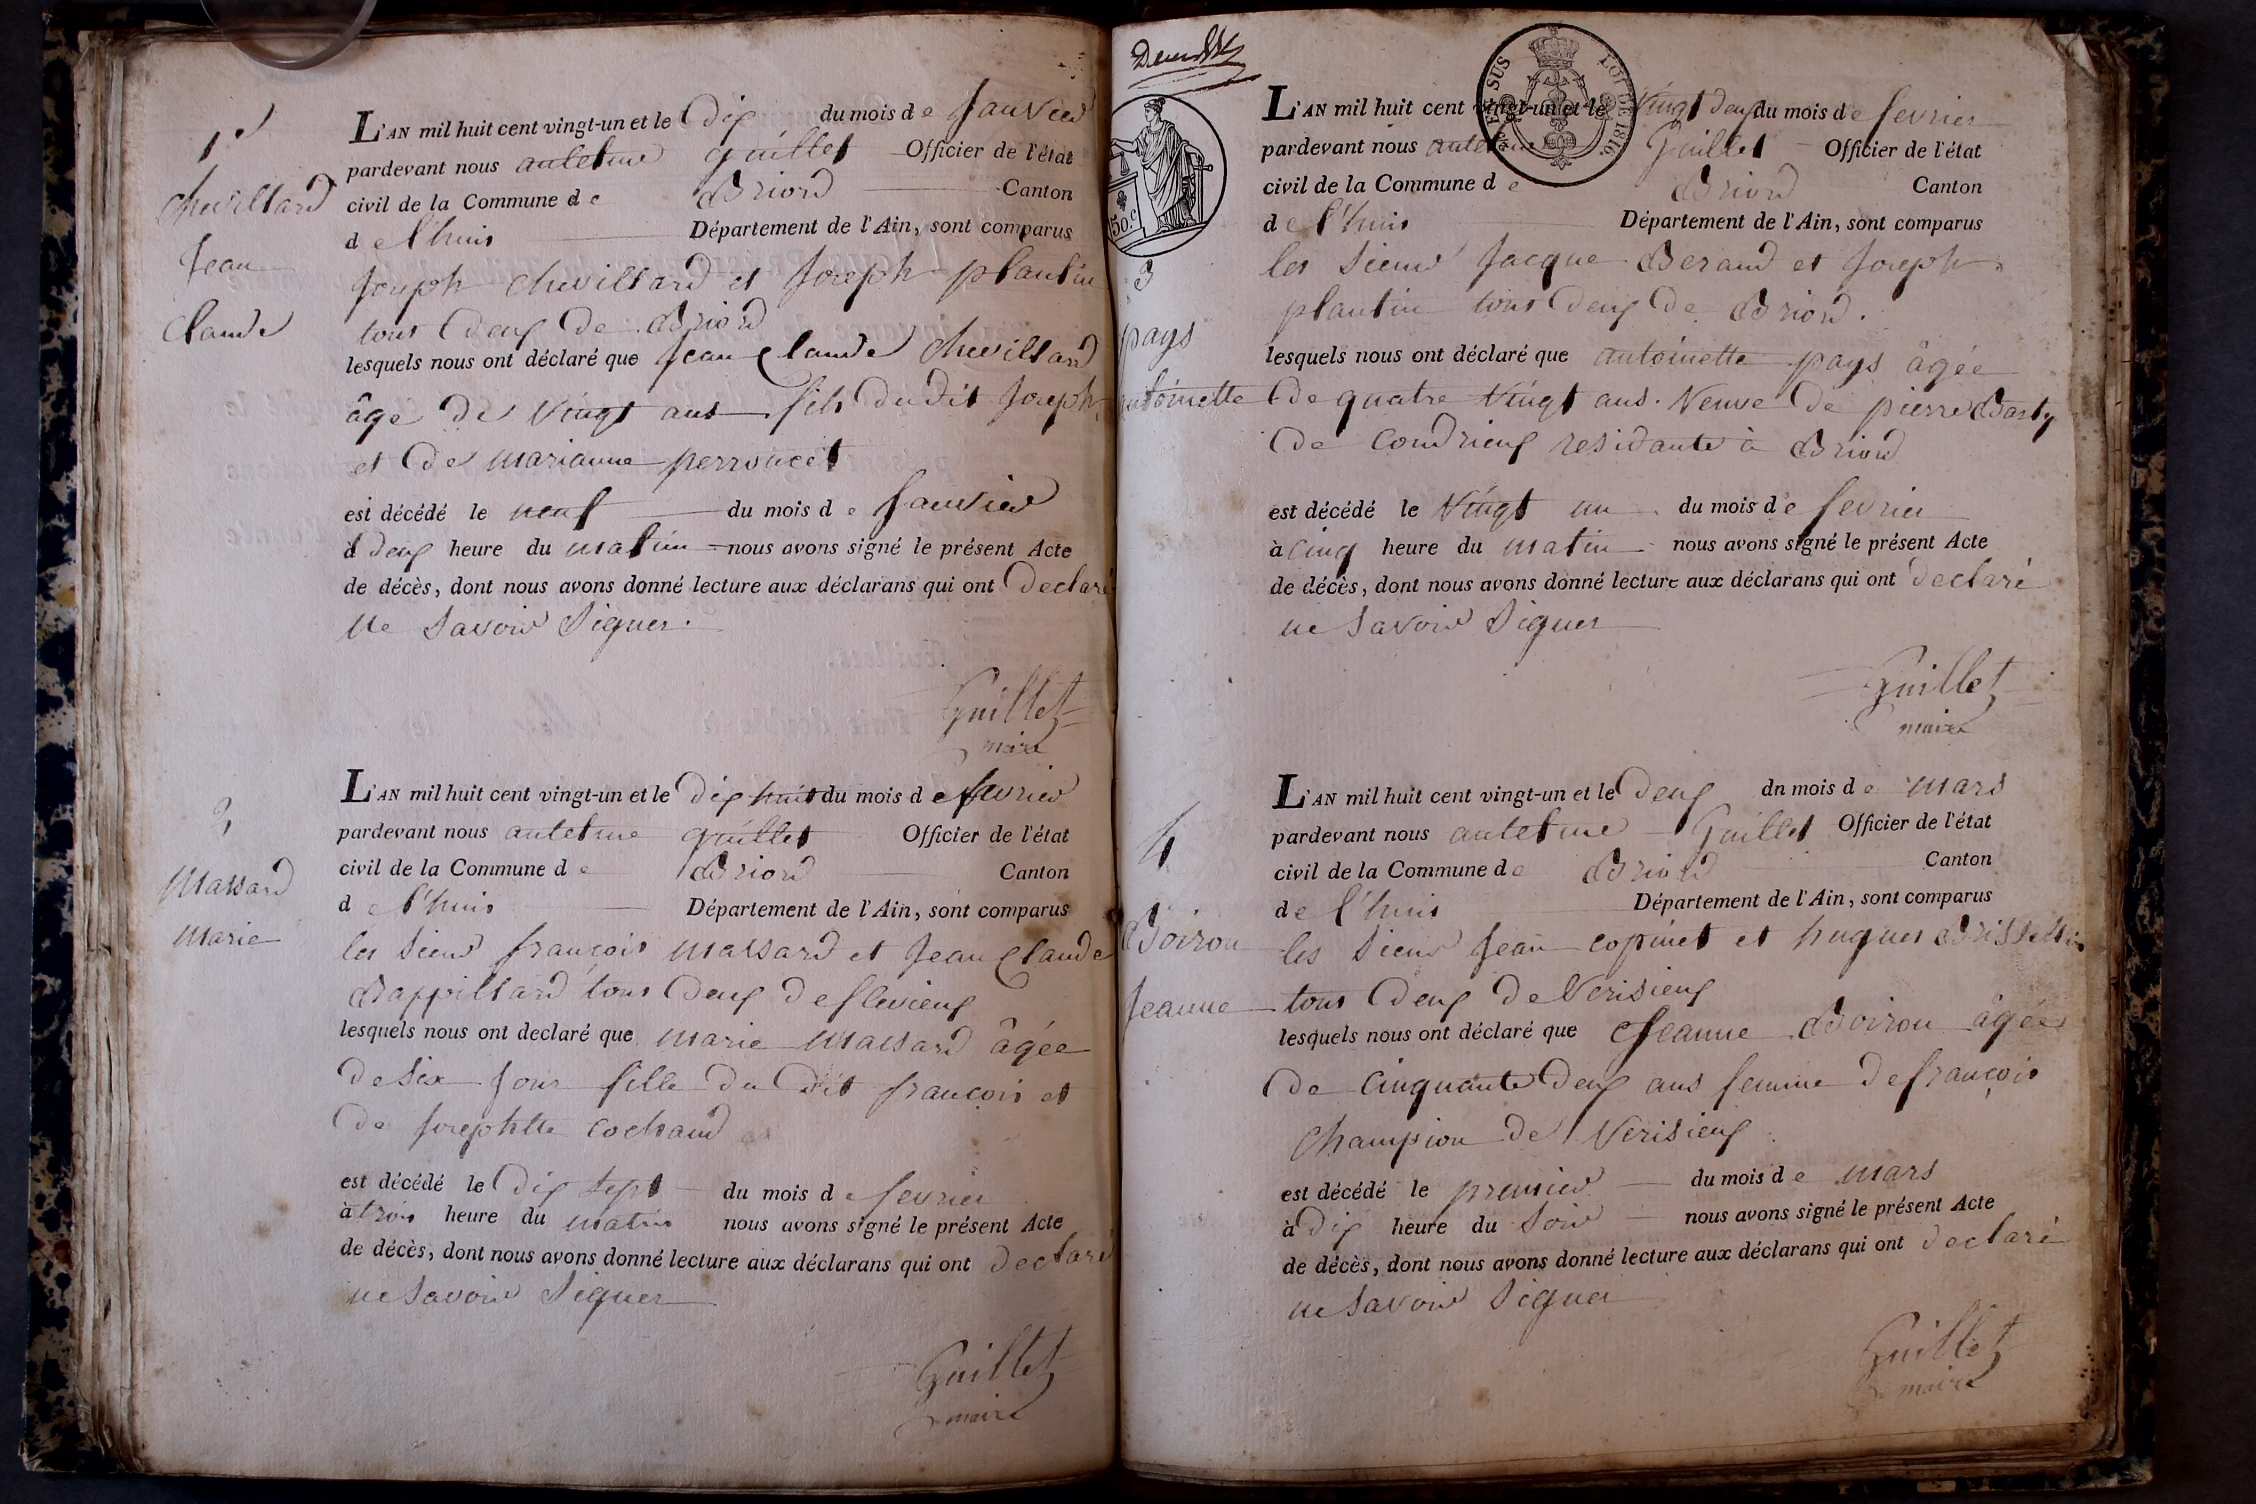 1er
Chevillard
Jean
Claude
L'AN mil huit cent vingt-un et le Dix du mois de Janvier
pardevant nous antelme guillet Officier de l'état
civil de la Commune de Briord Canton
de l'huis Département de l'Ain, sont comparus
Joseph Chevillard et Joseph plantin
tous Deux De Briord
lesquels nous ont déclaré que Jean Claude Chevillard
âge De Vingt ans fils Du Dit Joseph
et De marianne perroncet
est décédé le neuf du mois de Janvier
à deux heure du matin nous avons signé le présent Acte
de décès, dont nous avons donné lecture aux déclarans qui ont Declaré
Ne Savoir Signer.
Guillet
maire
2
Massard
Marie
L'AN mil huit cent vingt-un et le Dix huit du mois de fevrier
pardevant nous antelme guillet Officier de l'état
civil de la Commune de Briord Canton
de l'huis Département de l'Ain, sont comparus
les Sieur françois Massard et Jean Claude
Bappillard tous Deux De flevieux
lesquels nous ont declaré que Marie Massard âgée
De Six Jour fille Du Dit françois et
De Josephtte Cochand
est décédé le Dix Sept du mois de fevrier
à trois heure du matin nous avons signé le présent Acte
de décès, dont nous avons donné lecture aux déclarans qui ont Declaré
ne Savoir Signer
Guillet
maire
TIMBRE
50.c
EN SUS
LOI DE 1816.
3
pays
antoinette
L'AN mil huit cent vingt-un et le Vingt Deux du mois de fevrier
pardevant nous antelme Guillet Officier de l'état
civil de la Commune de Briord Canton
de l'huis Département de l'Ain, sont comparus
les Sieur Jacque Beraud et Joseph
plantin tous Deux De Briord.
lesquels nous ont déclaré que antoinette pays âgée
De quatre Vingt ans. Veuve De pierre Barty
De Condrieux residante à Briord
est décédé le Vingt un du mois de fevrier
à Cinq heure du matin nous avons signé le présent Acte
de décès, dont nous avons donné lecture aux déclarans qui ont Declaré
ne Savoir Signer
Guillet
maire
4
Boiron
Jeanne
L'AN mil huit cent vingt-un et le Deux dn mois de mars
pardevant nous antelme Guillet Officier de l'état
civil de la Commune de Briord Canton
de l'huis Département de l'Ain, sont comparus
les Sieur Jean copinet et hugues
tous Deux De Verisieux
lesquels nous ont déclaré que Jeanne Boiron âgée
De Cinquante Deux ans femme De françois
Champion De Verisieux
est décédé le premier du mois de mars
à Dix heure du Soir nous avons signé le présent Acte
de décès, dont nous avons donné lecture aux déclarans qui ont declaré
ne Savoir Signer
Guillet
maire